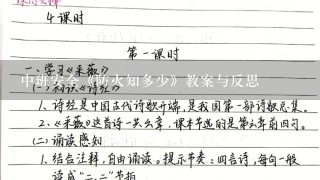 4课时
第一课时
一、学习《采薇》
中班安全《防火知多少》教案与反思
(一)初认《诗经》
1、诗经是中国古代诗歌开端,是我国第一部诗歌总集。
2、《采薇》这首诗一共六章,课本节选的是第六章前四句。
(二)诵读感知
1、结合注释,自由诵读。提示节奏:四言诗,每句一般
读成“二、二”节拍